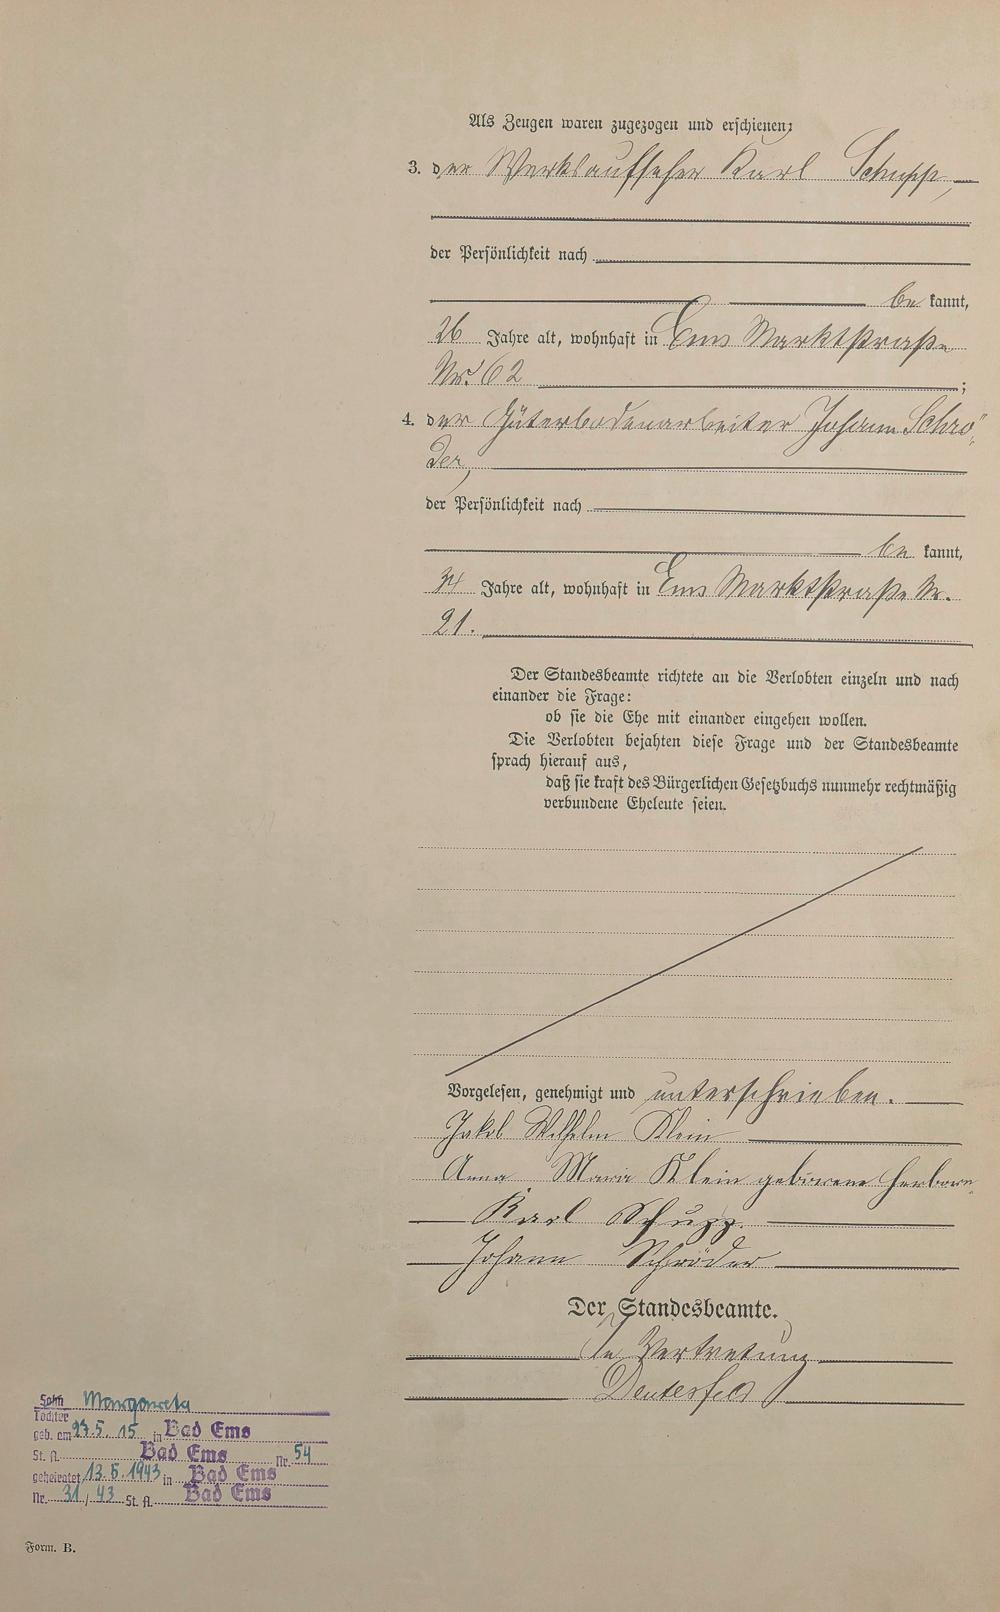 Als Zeugen waren zugezogen und erschienen:
3. der Werksaufseher Karl Schupp,
der Persönlichkeit nach
be kannt,
26 Jahre alt, wohnhaft in Ems Marktstraße
Nr. 62 ;
4. der Güterbodenarbeiter Johann Schrö-
der,
der Persönlichkeit nach
be kannt,
34 Jahre alt, wohnhaft in Ems Marktstraße Nr.
21.
Der Standesbeamte richtete an die Verlobten einzeln und nach
einander die Frage:
ob sie die Ehe mit einander eingehen wollen.
Die Verlobten bejahten diese Frage und der Standesbeamte
sprach hierauf aus,
daß sie kraft des Bürgerlichen Gesetzbuchs nunmehr rechtmäßig
verbundene Eheleute seien.
Vorgelesen, genehmigt und unterschrieben.
Jakob Wilhelm Klein
Anna Maria Klein geborene Herborn
Karl Schupp.
Johann Schröder
Der Standesbeamte.
In Vertretung
Sohn Margareta
Tochter
geb. am 23.5.15 in Bad Ems
St. A. Bad Ems Nr. 54
geheiratet 13.5.1943 in Bad Ems
Nr. 31/43 St. A. Bad Ems
Form. B.